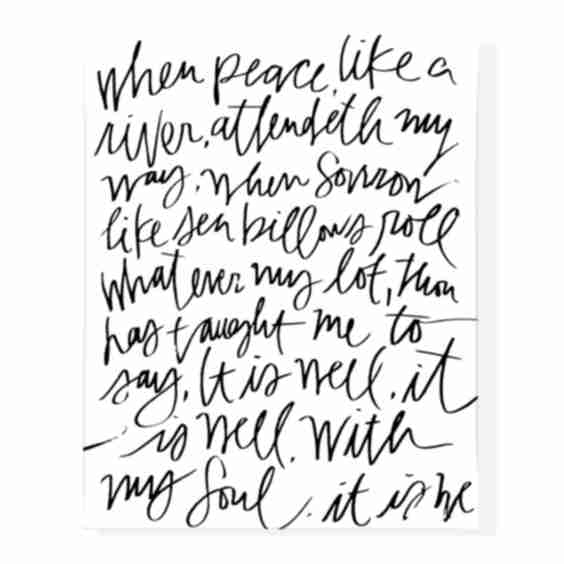 when peace, like a
river, attendeth my
way, when sorrow
like sea billows roll
whatever my lot, thou
has taught me to
say, It is well, it
is well, with
my soul, it is